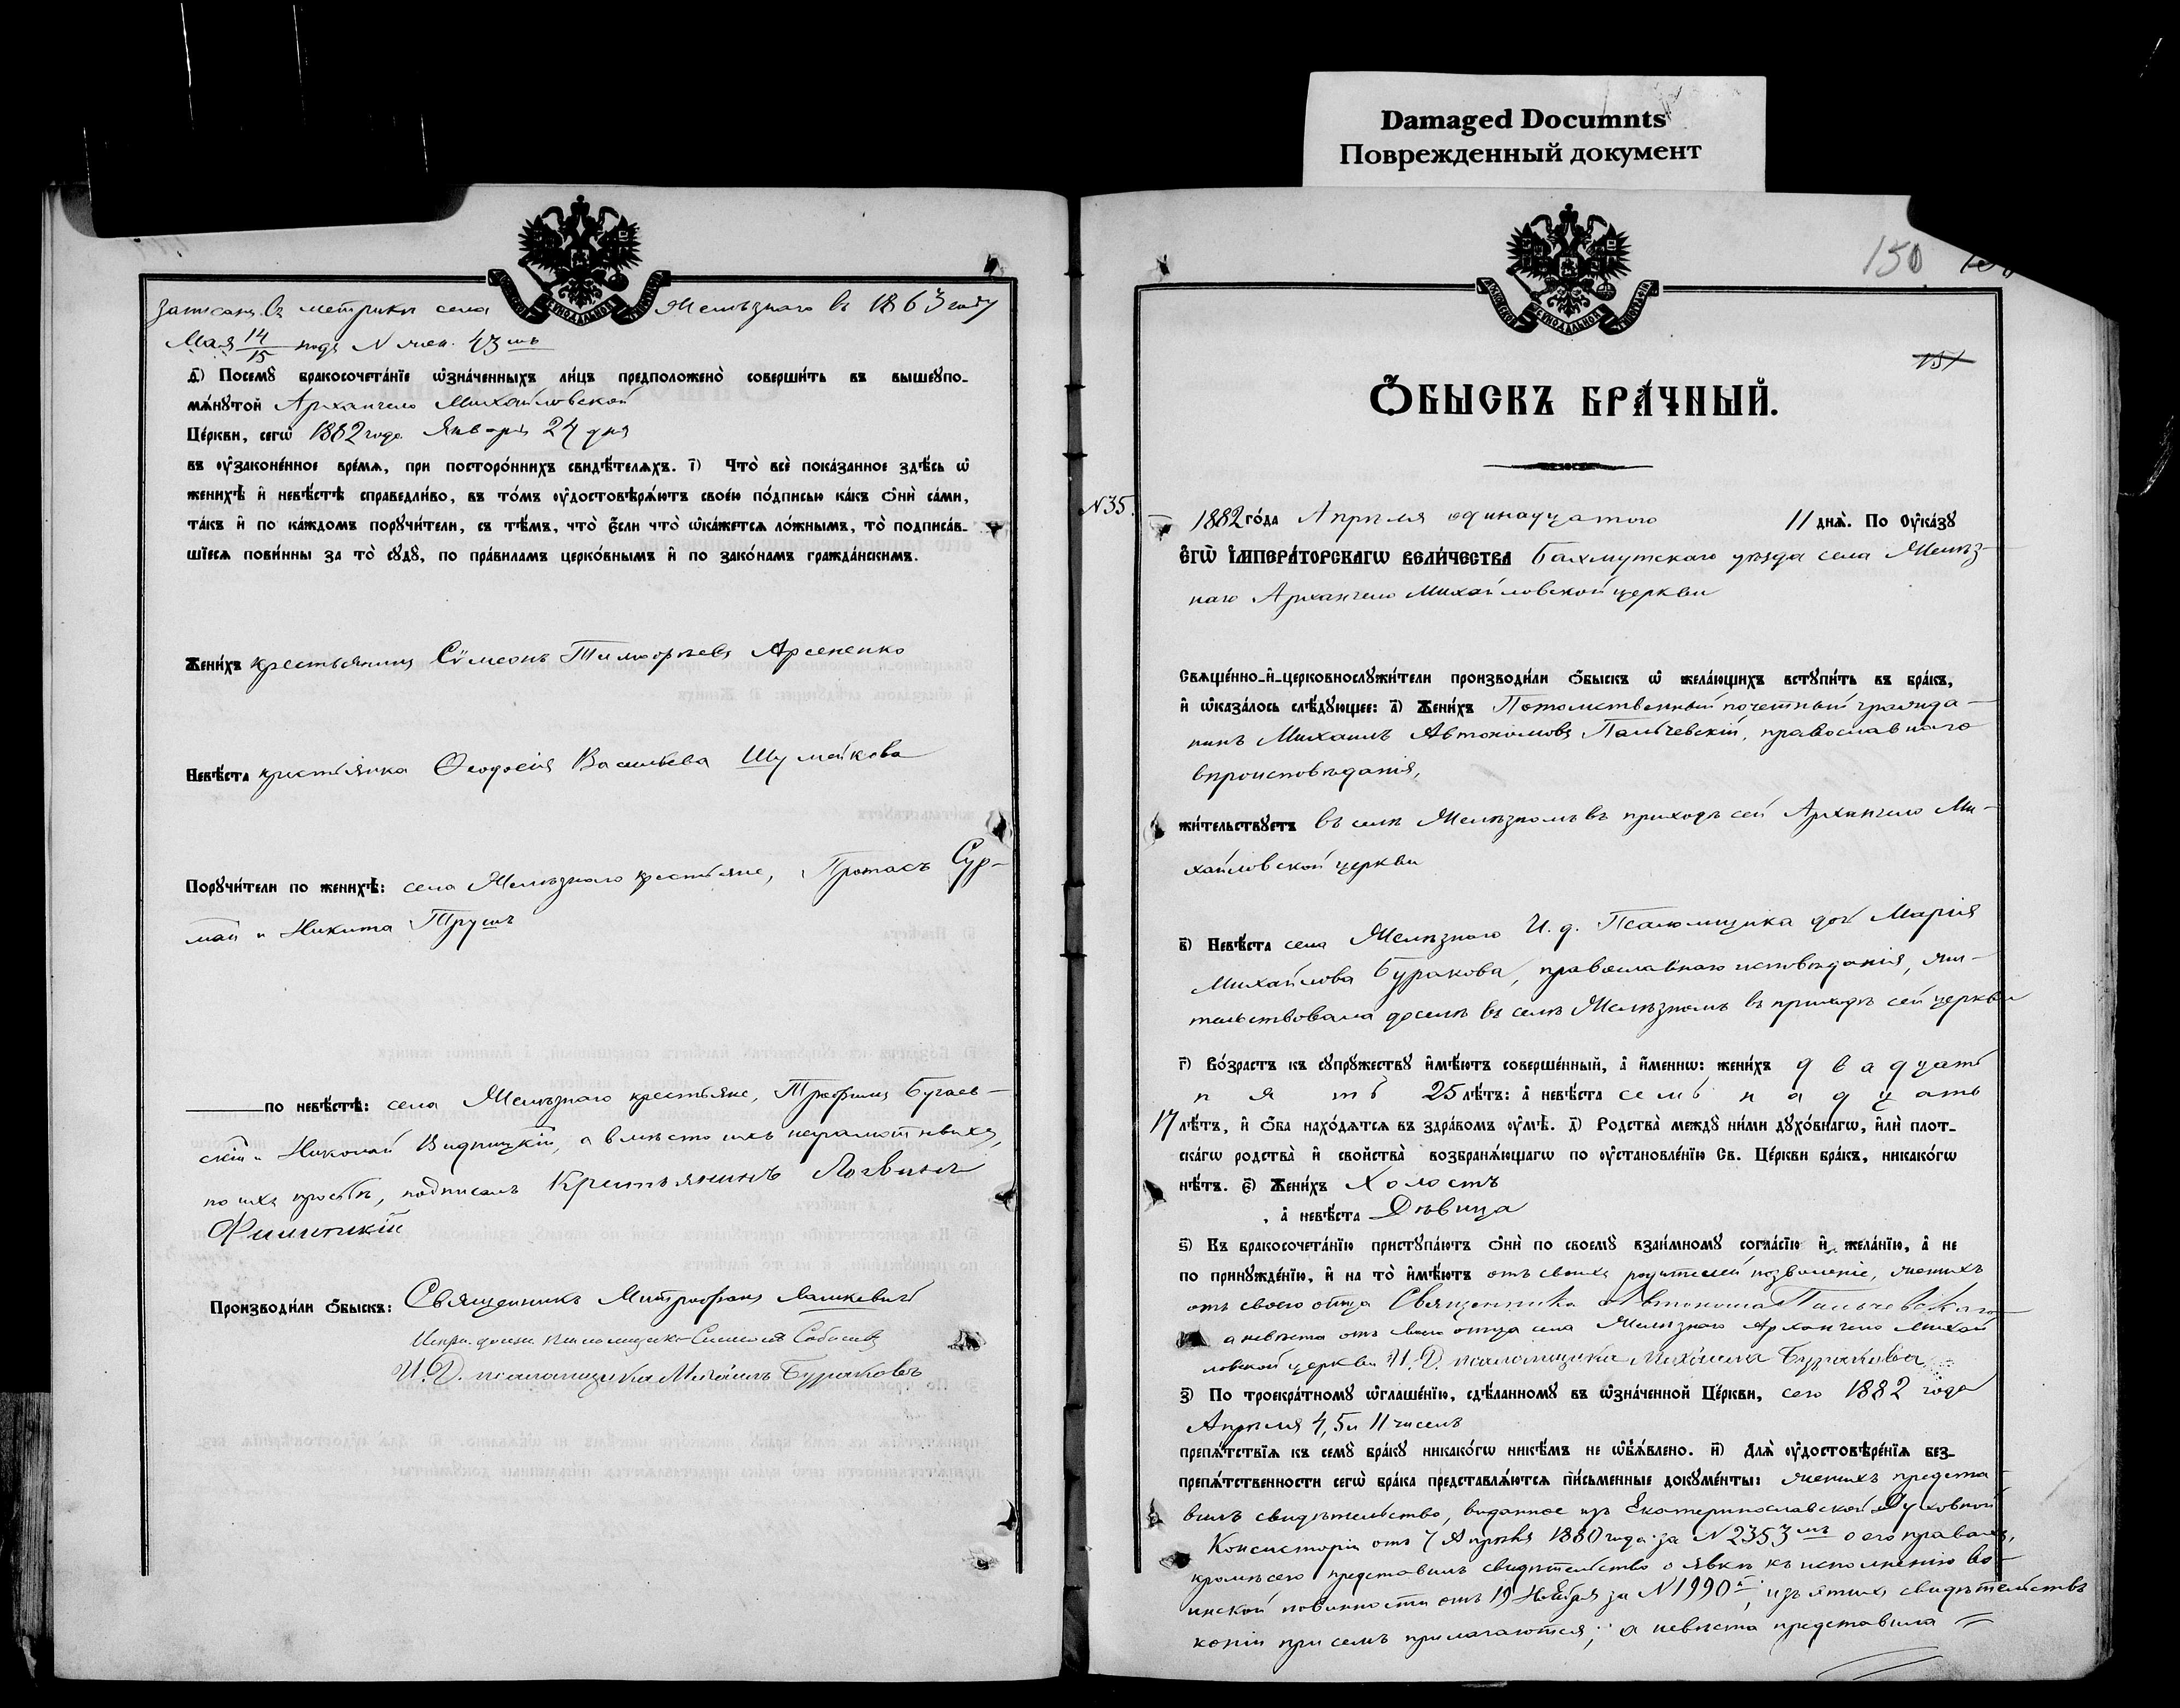 Damaged Documnts
Поврежденный документ
записан. въ метрики села Желѣзнаго въ 1863 году
Мая 14/15 подъ № жен. 43мъ
д҃і) Посемꙋ бракосочета́нїе ѡ҆зна́ченныхъ ли́цъ предположено̀ соверши́ть въ вышеꙋпо-
мѧ́нꙋтой Архангело Михайловской
Це́ркви, сегѡ̀ 1882 года Января 24 дня
въ оу҆законе́нное вре́мѧ, при посторо́ннихъ свидѣ́телѧхъ. і҃) Что̀ всѐ пока́занное здѣ́сь ѡ҆
женихѣ̀ и҆ невѣ́стѣ справедли́во, въ то́мъ оу҆достовѣрѧ́ютъ свое́ю по́дписью ка́къ ѻ҆нѝ са́ми,
та́къ и҆ по ка́ждомъ порꙋчи́тели, съ тѣ́мъ, что̀ є҆́сли что̀ ѡ҆ка́жетсѧ ло́жнымъ, то̀ подписа́в-
шїесѧ пови́нны за то̀ сꙋдꙋ̀, по пра́виламъ церко́внымъ и҆ по зако́намъ гражда́нскимъ.
Жени́хъ крестьянинъ Сѵмеонъ Тимоѳеевъ Арсененко
Невѣ́ста крестьянка Ѳеодосія Васильева Шумейкова
Порꙋчи́тели по женихѣ̀: села Желѣзнаго крестьяне, Протасъ Сур-
май и Никита Трушъ
по невѣ́стѣ: села Желѣзнаго крестьяне, Трофимъ Бугаев-
скій и Николай Видницкій, а вмѣсто ихъ неграмотныхъ,
по ихъ просьбѣ, подписалъ Крестьянинъ Логвинъ
Производи́ли ѻ҆́быскъ: Священникъ Митрофанъ Лашкевичъ
И. Д. псаломщика Михаилъ Бураковъ
150
151
Ѻ҆́БЫСКЪ БРА́ЧНЫЙ.
№35.
1882 го́да Апрѣля одинадцатого 11 днѧ̀. По Оу҆ка́зꙋ
Є҆ГѠ̀ И҆МПЕРА́ТОРСКАГѠ ВЕЛИ́ЧЕСТВА Бахмутскаго уѣзда села Желѣз-
наго Архангело Михайловской церкви
Свѧще́нно-и҆-церковнослꙋжи́тели производи́ли ѻ҆́быскъ ѡ҆ жела́ющихъ встꙋпи́ть въ бра́къ,
и҆ ѡ҆каза́лось слѣ́дꙋющее: а҃) Жени́хъ Потомственный почетный гражда-
нинъ Михаилъ Автономовъ Пальчевскій, православнаго
вѣроисповѣданія,
жи́тельствꙋетъ въ селѣ Желѣзномъ въ приходѣ сей Архангело Ми-
хайловской церкви
в҃) Невѣ́ста села Желѣзнаго И. д. Псаломщика дочь Марія
Михайлова Буракова, православнаго исповѣданія, жи-
тельствовала доселѣ въ селѣ Желѣзномъ въ приходѣ сей церкви
г҃) Во́зрастъ къ сꙋпрꙋ́жествꙋ и҆мѣ́ютъ соверше́нный, а҆ и҆́меннѡ: жени́хъ двадцать
пять 25 лѣ́тъ: а҆ невѣ́ста семьнадцать
17 лѣ́тъ, и҆ ѻ҆́ба нахо́дѧтсѧ въ здра́вомъ оу҆мѣ̀. д҃) Родства̀ междꙋ̀ ни́ми дꙋхо́внагѡ, и҆лѝ плот-
ска́гѡ родства̀ и҆ свойства̀ возбранѧ́ющагѡ по оу҆становле́нїю Св. Це́ркви бра́къ, никако́гѡ
нѣ́тъ. є҃) Жени́хъ Холостъ
, а҆ невѣ́ста Дѣвица
ѕ҃) Къ бракосочета́нїю пристꙋпа́ютъ ѻ҆нѝ по своемꙋ̀ взаи́мномꙋ согла́сїю и҆ жела́нїю, а҆ не
по принꙋжде́нїю, и҆ на то̀ и҆мѣ́ютъ отъ своихъ родителей позволеніе, женихъ
отъ своего отца Священника Автонома Пальчевскаго
а невѣста отъ своего отца села Желѣзнаго Архангело Михай
ловской церкви И. Д. псаломщика Михаила Буракова
з҃) По троекра́тномꙋ ѡ҆глаше́нїю, сдѣ́ланномꙋ въ ѡ҆зна́ченной Це́ркви, сего 1882 года
Апрѣля 4, 5 и 11 чиселъ
препѧ́тствїѧ къ семꙋ̀ бра́кꙋ никако́гѡ никѣ́мъ не ѡ҆б̾ѧ́влено. и҃) Длѧ̀ оу҆достовѣре́нїѧ без-
препѧ́тственности сегѡ̀ бра́ка представлѧ́ютсѧ пи́сьменные докꙋме́нты: женихъ предста-
вилъ свидѣтельство, виданное изъ Екатеринославской Духовной
Консисторіи отъ 7 Апрѣля 1880 года за №2353мъ о его правахъ,
кромѣ сего представилъ свидѣтельство о явкѣ къ исполненію во-
инской повинности отъ 19 Ноября за №1990й, изъ этихъ свидѣтельствъ
копіи при семъ прилагаются; а невѣста представила =